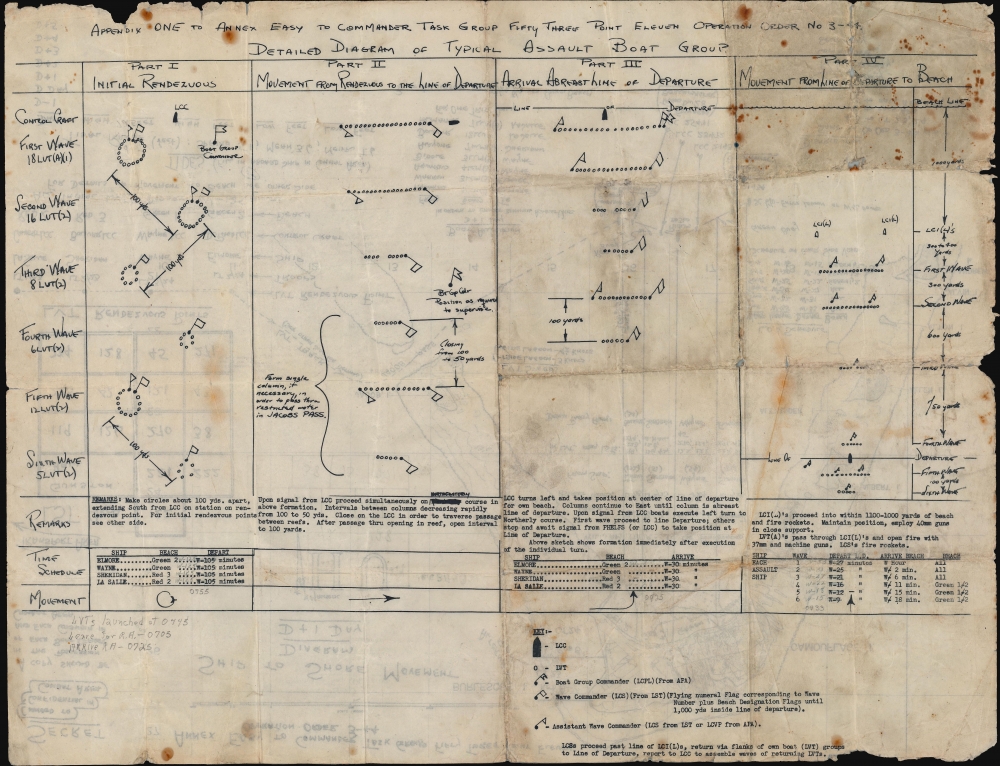 APPENDIX ONE TO ANNEX EASY TO COMMANDER TASK GROUP FIFTY THREE POINT ELEVEN OPERATION ORDER NO 3-44.
DETAILED DIAGRAM OF TYPICAL ASSAULT BOAT GROUP
PART I
INITIAL RENDEZVOUS
PART II
MOVEMENT FROM RENDEZVOUS TO THE LINE OF DEPARTURE
PART III
ARRIVAL ABREAST LINE OF DEPARTURE
PART IV
MOVEMENT FROM LINE OF DEPARTURE TO BEACH
CONTROL CRAFT
FIRST WAVE
18 LVT(A)(1)
SECOND WAVE
16 LVT(2)
THIRD WAVE
8 LVT(2)
FOURTH WAVE
6 LVT(2)
FIFTH WAVE
12 LVT(2)
SIXTH WAVE
5 LVT(2)
LCC
BOAT GROUP
COMMANDER
100 yds
100 yds
100 yds
Bt Gp Cdr
Position as required
to supervise.
Closing
from 100
to 50 yards
Form single
column, if
necessary, in
order to pass thru
restricted water
in JACOBS PASS.
LINE
OF
DEPARTURE
100 yards
BEACH LINE
LCI(L)'s
LCI(L)
LCI(L)
FIRST WAVE
300 yards
SECOND WAVE
600 yards
THIRD WAVE
750 yards
FOURTH WAVE
LINE OF
DEPARTURE
FIFTH WAVE
SIXTH WAVE
REMARKS
REMARKS: Make circles about 100 yds. apart,
extending South from LCC on station on ren-
dezvous point. For initial rendezvous points
see other side.
Upon signal from LCC proceed simultaneously on course in
above formation. Intervals between columns decreasing rapidly
from 100 to 50 yds. Close on the LCC in order to traverse passage
between reefs. After passage thru opening in reef, open interval
to 100 yards.
LCC turns left and takes position at center of line of departure
for own beach. Columns continue to East until column is abreast
line of departure. Upon signal from LCC boats execute left turn to
Northerly course. First wave proceed to line Departure; others
stop and await signal from PHELPS (or LCC) to take position at
Line of Departure.
Above sketch shows formation immediately after execution
of the individual turn.
LCI(L)'s proceed into within 1100-1000 yards of beach
and fire rockets. Maintain position, employ 40mm guns
in close support.
LVT(A)'s pass through LCI(L)'s and open fire with
37mm and machine guns. LCS's fire rockets.
TIME
SCHEDULE
SHIP BEACH DEPART
ELMORE Green 2 W-105 minutes
WAYNE Green W-105 minutes
SHERIDAN Red 3 W-105 minutes
LA SALLE Red 2 W-105 minutes
0755
SHIP BEACH ARRIVE
ELMORE Green 2 W-30 minutes
WAYNE Green W-30 "
SHERIDAN Red 3 W-30 "
LA SALLE Red 2 W-30 "
SHIP WAVE DEPART L.D. ARRIVE BEACH BEACH
EACH 1 W-27 minutes W Hour All
ASSAULT 2 W-25 " W/ 2 min. All
SHIP 3 W-21 " W/ 6 min. All
4 W-16 " W/ 11 min. Green 1/2
5 W-12 " W/ 15 min. Green 1/2
6 W-9 " W/ 18 min. Green 1/2
MOVEMENT
LVTs launched at 0445
Leave for R.A. - 0705
ARRIVE R.A - 0725
KEY:-
- LCC
O - LVT
- Boat Group Commander (LCPL)(From APA)
- Wave Commander (LCS)(From LST)(Flying numeral Flag corresponding to Wave
Number plus Beach Designation Flags until
1,000 yds inside line of departure).
- Assistant Wave Commander (LCS from LST or LCVP from APA).
LCSs proceed past line of LCI(L)s, return via flanks of own boat (LVT) groups
to Line of Departure, report to LCC to assemble waves of returning LVTs.